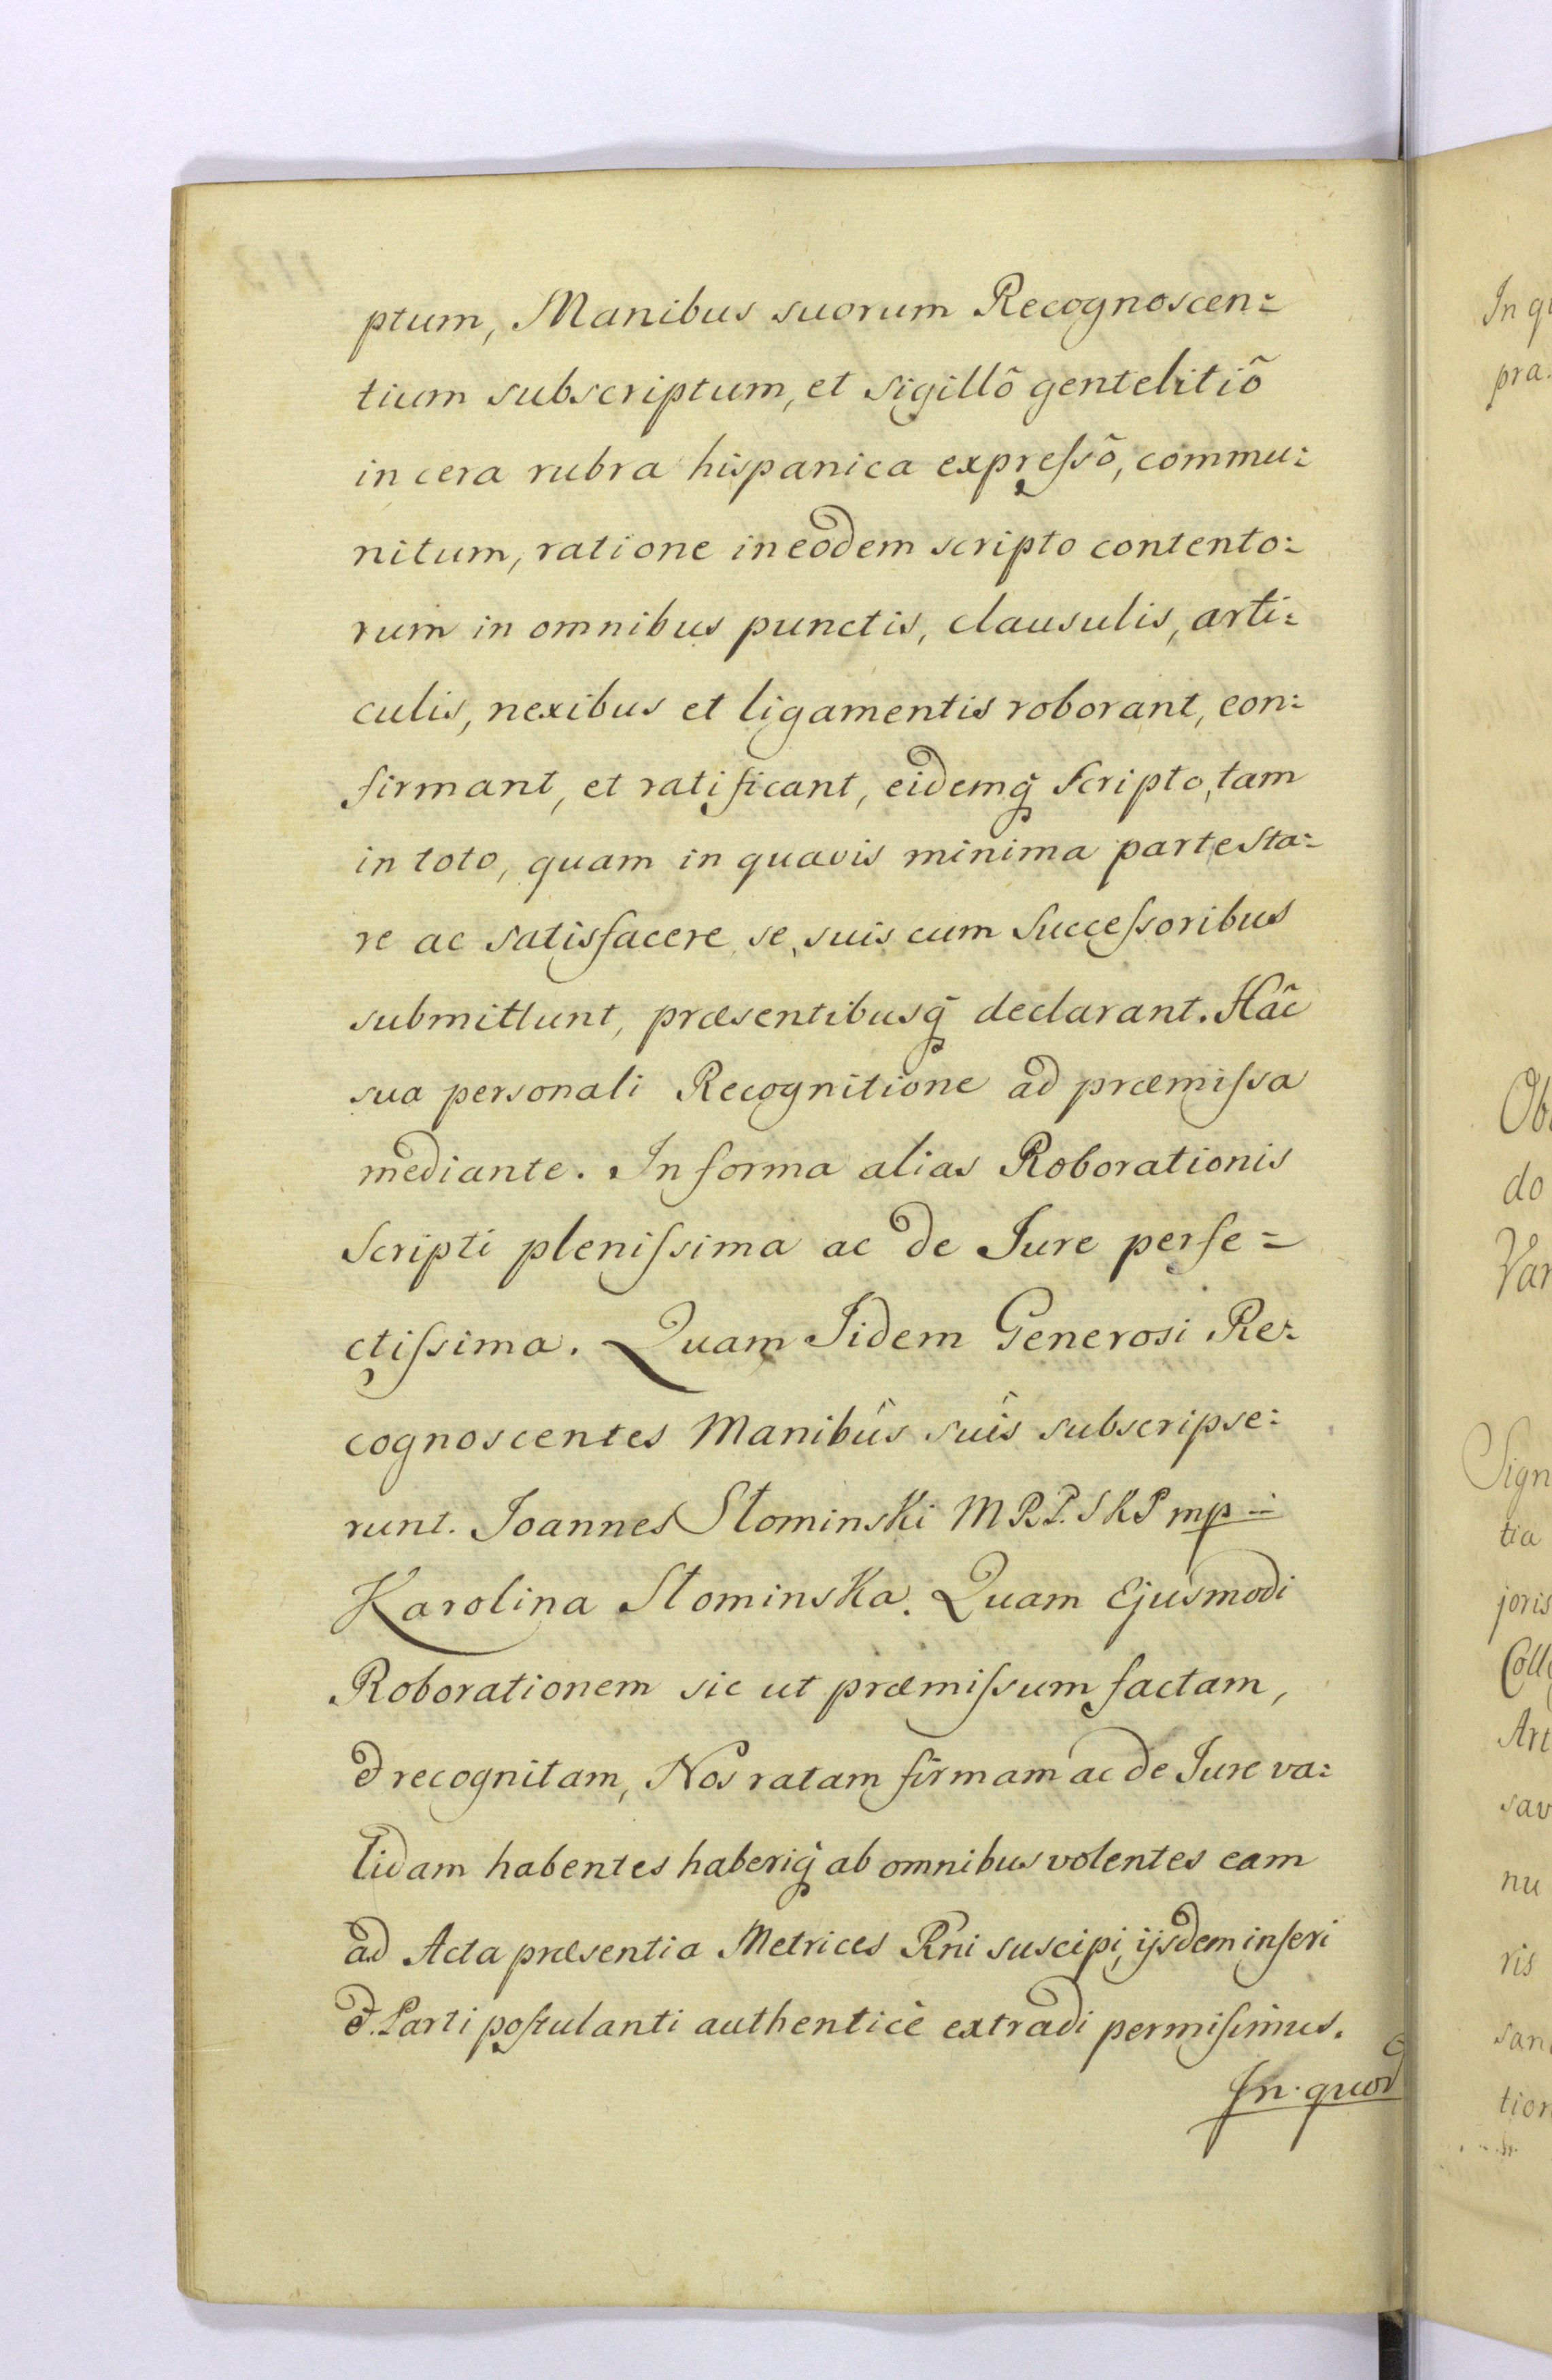 ptum, Manibus suorum Recognoscen=
tium subscriptum, et sigillõ gentelitiõ
in cera rubra hispanica expreſsõ, commu=
nitum, ratione in eodem scripto contento=
rum in omnibus punctis, clausulis, arti=
culis, nexibus et ligamentis roborant, con=
firmant, et ratificant, eidemq̃ Scripto, tam
in toto, quam in quavis minima parte sta=
re ac satisfacere, se, suis cum Succeſsoribus
submittunt, præsentibusq̃ declarant. Hâc
sua personali Recognitione ad præmiſsa
mediante. In forma alias Roborationis
Scripti pleniſsima ac de Jure perfe=
ctiſsima. Quam Iidem Generosi Re=
cognoscentes Manibus suis subscripse=
runt. Joannes Słominski M R P. S K P mp
Karolina Słominska. Quam Ejusmodi
Roborationem sic ut præmiſsum factam,
& recognitam, Nos ratam firmam ac de Jure va=
lidam habentes haberiq̃ ab omnibus volentes eam
ad Acta præsentia Metrices Rñi suscipi, ijsdem inseri
&. Parti poſtulanti authenticè extradi permiſimus.
In quor
In q
pra
Ob
do
Var
Sign
tia
joris
Coll
Art
sav
nu
ris
san
tion